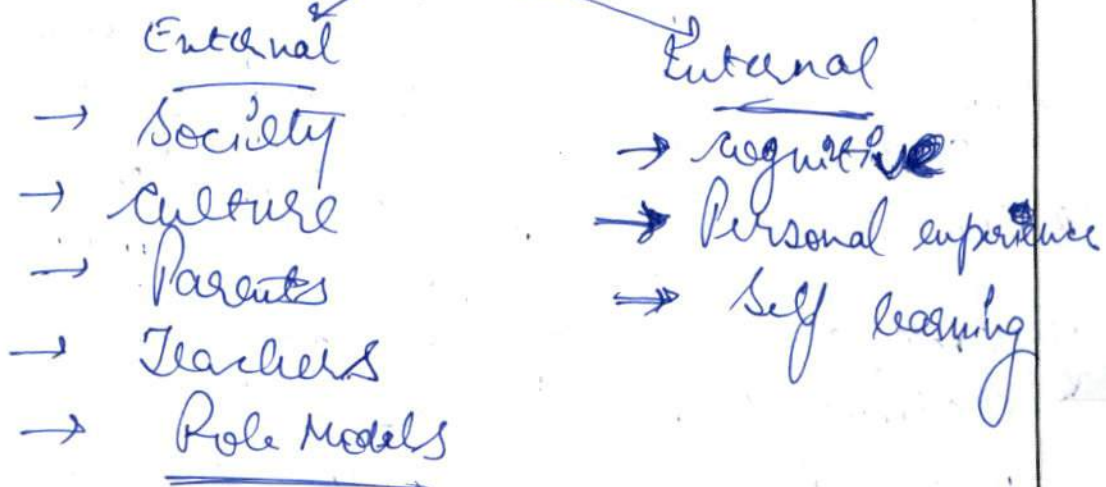 External
→ Society
→ Culture
→ Parents
→ Teachers
→ Role Models
Internal
→ cognitive
→ Personal experience
→ Self learning